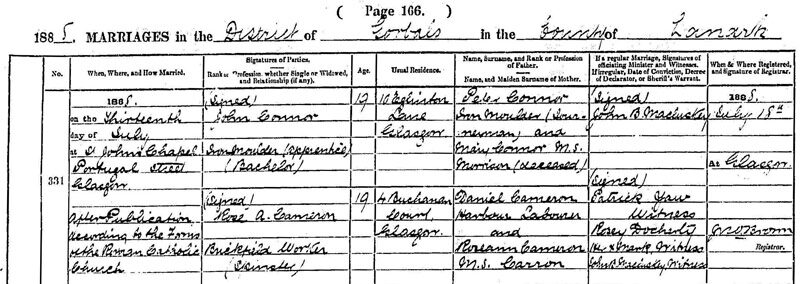 ( Page 166. )
1885. MARRIAGES in the District of Gorbals in the County of Lanark
No. When, Where, and How Married. Signatures of Parties. Rank or Profession, whether Single or Widowed, and Relationship (if any). Age. Usual Residence. Name, Surname, and Rank or Profession of Father. Name, and Maiden Surname of Mother. If a regular Marriage, Signatures of officiating Minister and Witnesses. If irregular, Date of Conviction, Decree of Declarator, or Sheriff's Warrant. When & Where Registered, and Signature of Registrar.
331
1885.
on the Thirteenth
day of July
at St John's Chapel
Portugal Street
Glasgow
After Publication
according to the Forms
of the Roman Catholic
Church
(Signed)
John Connor
Iron Moulder (apprentice)
(Bachelor)
(Signed)
Rose A. Cameron
Brickfield Worker
(Spinster)
19
19
10 Eglinton
Lane
Glasgow
4 Buchanan
Court
Glasgow
Peter Connor
Iron Moulder (Jour-
neyman) and
Mary Connor M.S.
Morrison (deceased)
Daniel Cameron
Harbour Labourer
and
Roseann Cameron
M.S. Carron
(Signed)
John B Macluskey
(Signed)
Patrick
Witness
Rosey Docherty
Her x Mark, Witness
John B. Macluskey Witness
1885.
July 15th
At Glasgow
Registrar.